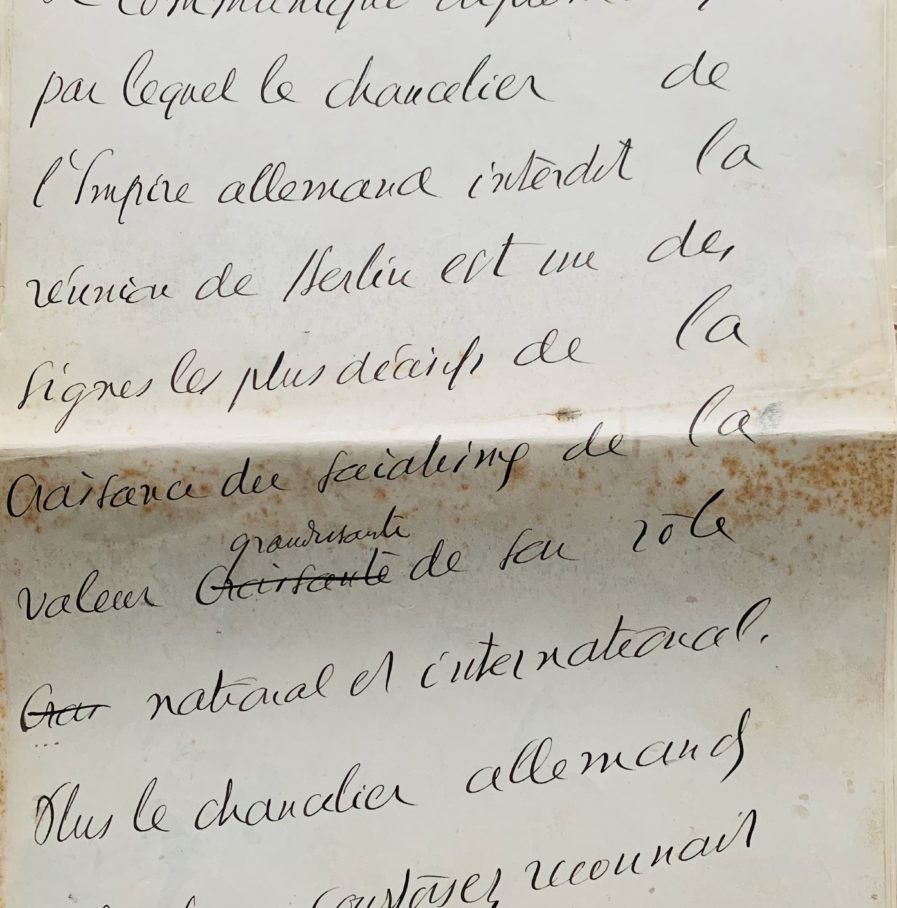 communiqué
par lequel le chancelier de
l'Empire allemand interdit la
réunion de Berlin est un des
signes les plus décisifs de la
croissance du socialisme de la
grandissante
valeur croissante de son rôle
national et international.
Plus le chancelier allemand
courtoises reconnait